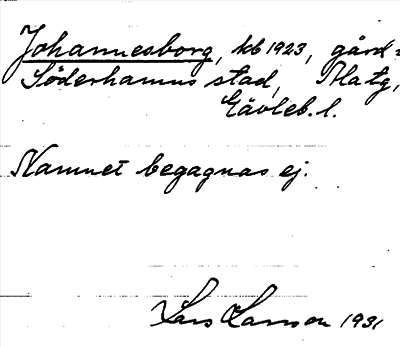 Johannesborg, kb 1923, gård =
Söderhamns stad, Matg,
Gävleb. l.
Namnet begagnas ej.
Lars Larsson 1931